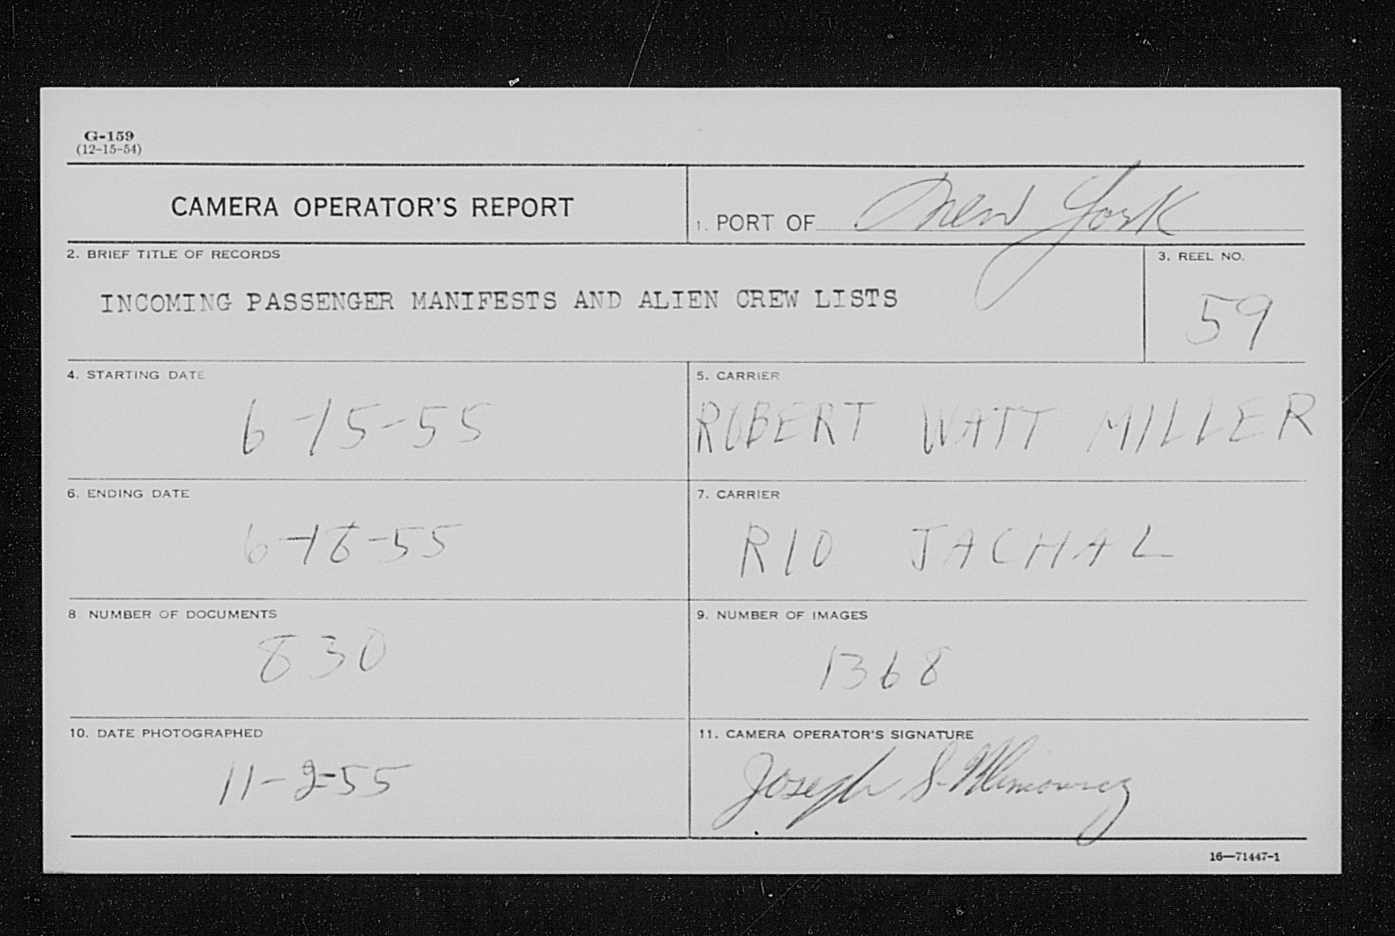 G-159
(12-15-54)
CAMERA OPERATOR'S REPORT
1. PORT OF New York
2. BRIEF TITLE OF RECORDS
INCOMING PASSENGER MANIFESTS AND ALIEN CREW LISTS
3. REEL NO.
59
4. STARTING DATE
6-15-55
5. CARRIER
ROBERT WATT MILLER
6. ENDING DATE
6-18-55
7. CARRIER
RIO JACHAL
8 NUMBER OF DOCUMENTS
830
9. NUMBER OF IMAGES
1368
10. DATE PHOTOGRAPHED
11-2-55
11. CAMERA OPERATOR'S SIGNATURE
Joseph S.
16—71447-1